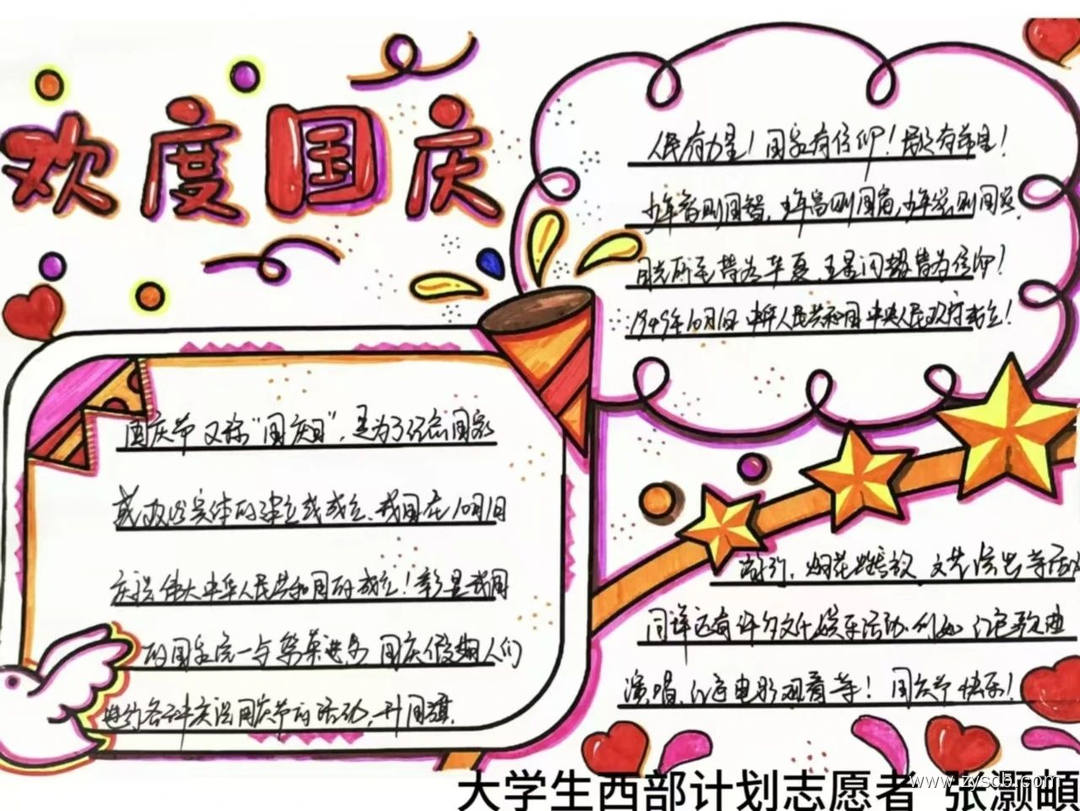 欢度国庆
人民有力量！国家有信仰！民族有希望！
少年智则国智，少年富则国富，少年强则国强。
目光所至皆为华夏，五星闪耀皆为信仰！
1949年10月1日中华人民共和国中央人民政府成立！
国庆节又称“国庆日”，是为了纪念国家
或政治实体的建立或成立、我国在10月1日
庆祝伟大中华人民共和国的成立！彰显我国
的国家统一与繁荣进步 国庆假期人们
进行各种庆祝国庆节的活动，升国旗，
游行，烟花燃放 文艺演出等活动
同样还有许多文化娱乐活动.例如 红色歌曲
演唱，红色电影观看等！ 国庆节快乐！
大学生西部计划志愿者 张灏頔
www.zyscb.com